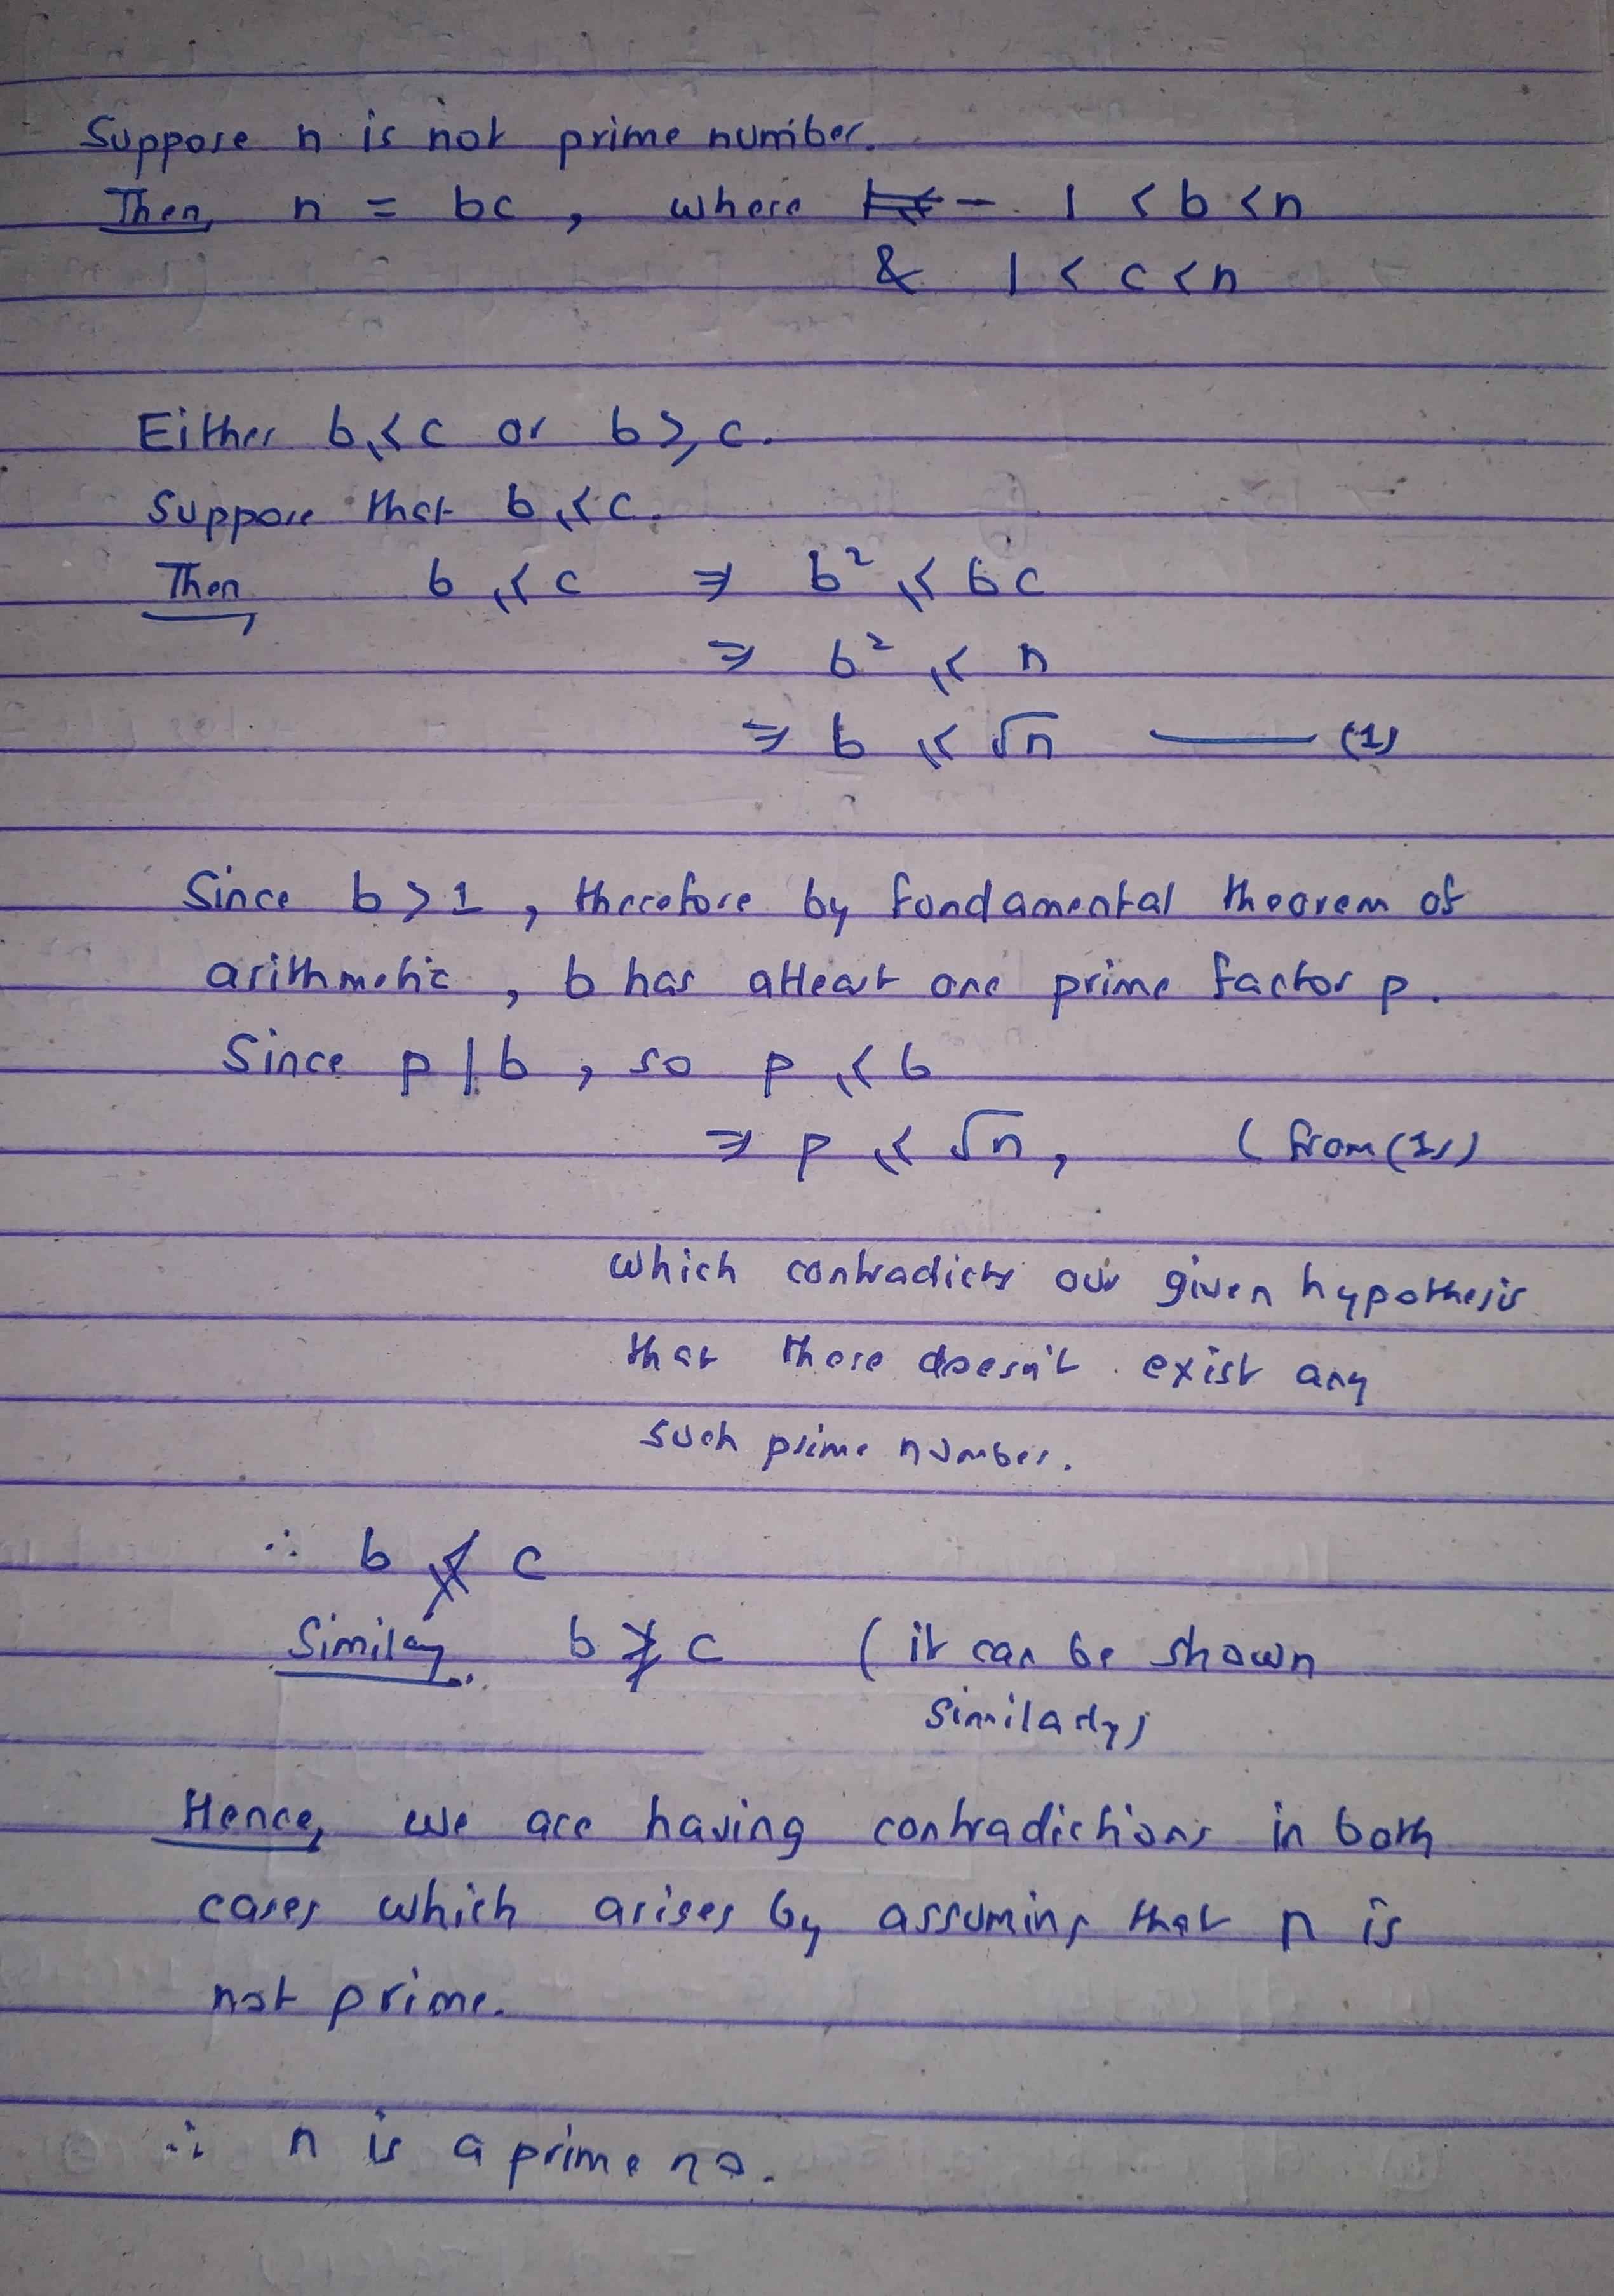 Suppose n is not prime number.
Then, n = bc , where 1 < b < n
& 1 < c < n
Either b ≤ c or b ≥ c.
Suppose that b ≤ c.
Then, b ≤ c ⇒ b² ≤ bc
⇒ b² ≤ n
⇒ b ≤ √n —— (1)
Since b > 1 , therefore by fundamental theorem of
arithmetic , b has atleast one prime factor p.
Since p | b , so p ≤ b
⇒ p ≤ √n , (from (1))
which contradicts our given hypothesis
that there doesn't exist any
such prime number.
∴ b ≰ c
Similarly, b ≱ c ( it can be shown
similarly)
Hence, we are having contradictions in both
cases which arises by assuming that n is
not prime.
∴ n is a prime no.